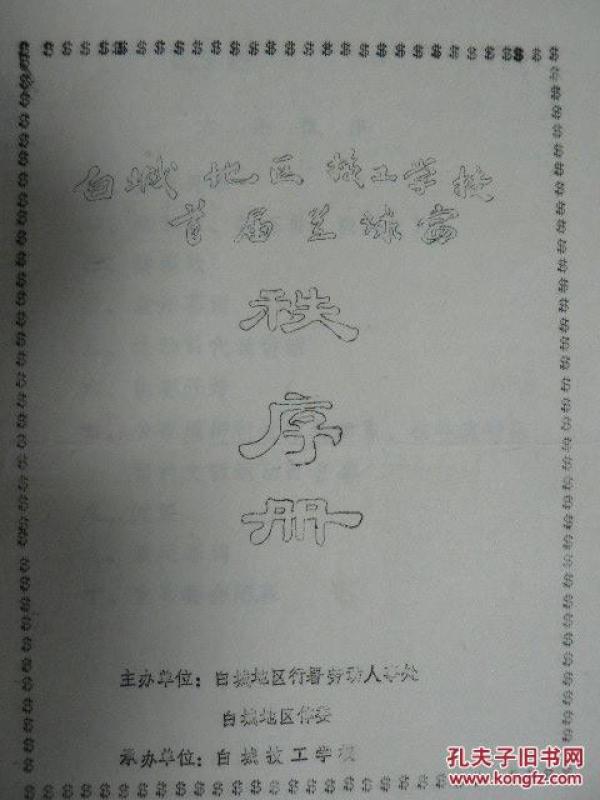 白城地区技工学校
首届兰球赛
秩
序
册
主办单位：白城地区行署劳动人事处
白城地区体委
承办单位：白城技工学校
孔夫子旧书网
www.kongfz.com